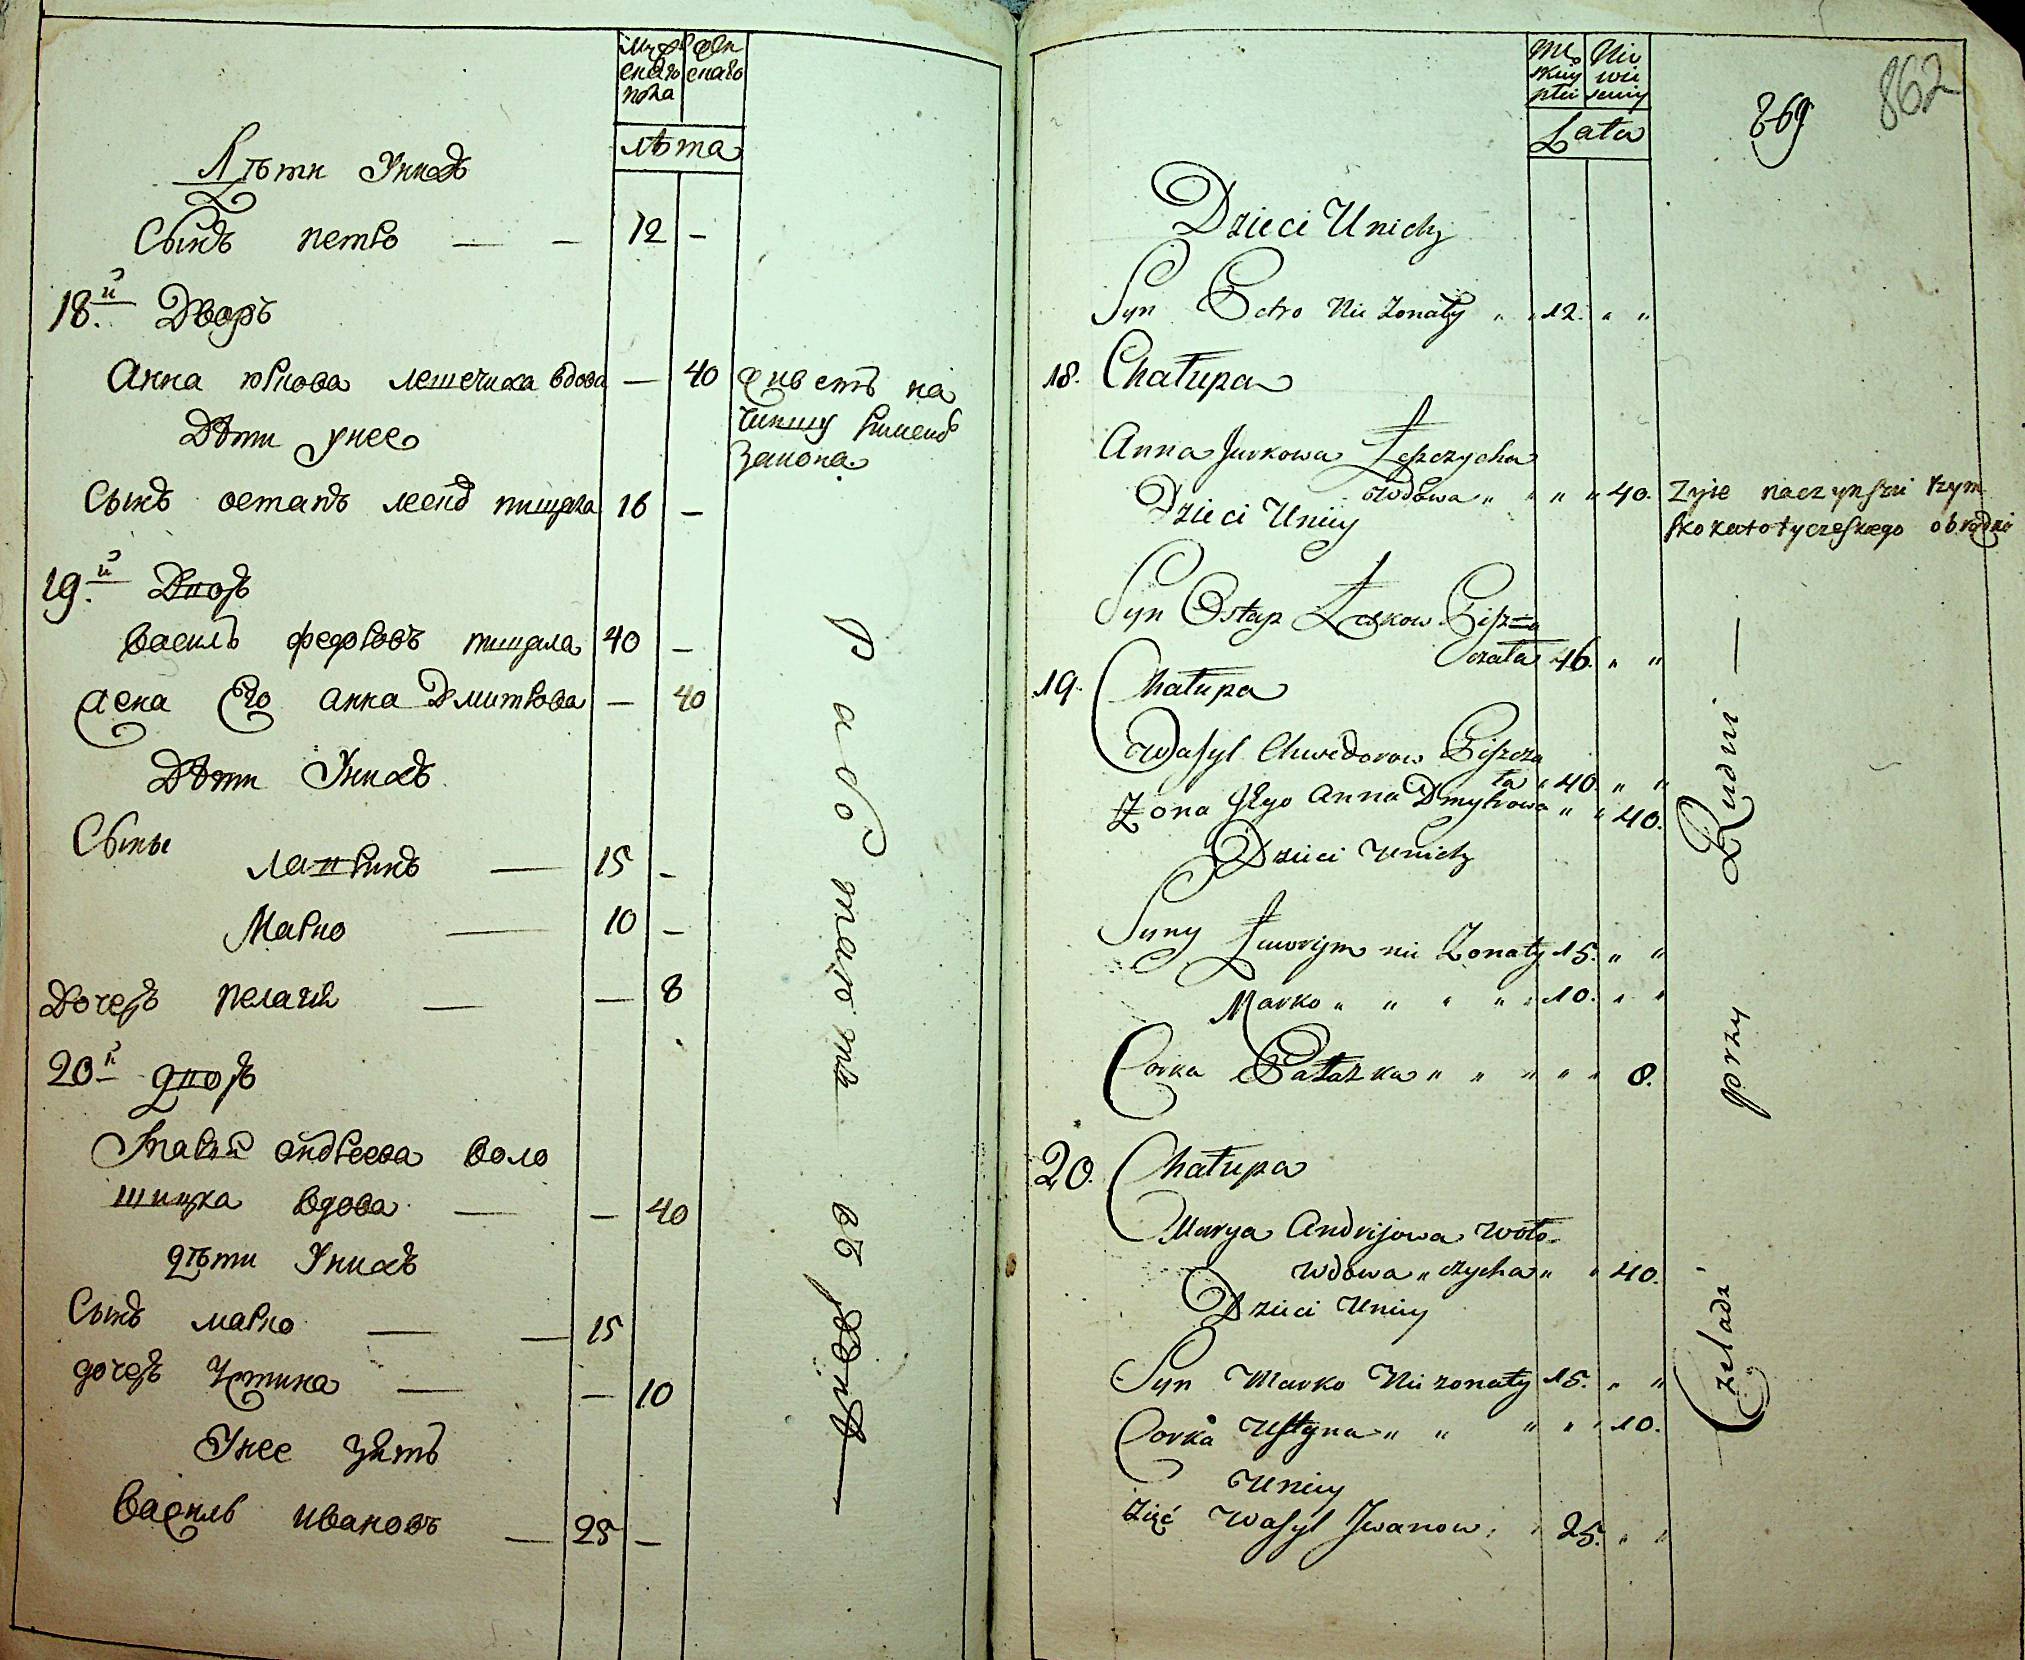 мужескаго пола
женскаго
лѣта
Дѣти Унихъ
Сынъ петро — — 12 —
18.й Дворъ
Анна юркова лешечиха вдова — 40
живетъ на
чиншу римско
закона.
Дѣти унее
Сынъ остапъ пищала 16 —
19.й Дворъ
василь федоровъ пищала 40 —
жена Его анна Дмитрова — 40
Дѣти Унихъ
Сыны
лавринъ — 15 —
Марко — 10 —
Дочеръ пелагия — — 8
20.й дворъ
Мария андреева воло
шичка вдова — — 40
дѣти Унихъ
Сынъ марко — — 15
дочеръ Устина — — 10
Унее зять
василь ивановъ — 25 —
работаютъ въ рудни —
Mę skiey płci
Niewieściey
Lata
869
862
Dzieci Unich
Syn Petro Nie Zonaty " " 12. " "
18. Chałupa
Anna Jurkowa Leszczycha
wdowa " " " " 40. Zyie naczynszu rzym
sko katolyczeskego obrodni
Dzieci Uniiy
Syn Ostap Leskow Piszcza
czała 16. " "
19. Chałupa
Wasyl Chwedorow Piszcza
ła " 40. " "
Zona Jego Anna Dmytrowa " " 40.
Dzieci Unich
Syny Ławryn nie Zonaty 15. " "
Marko " " " " " 10. " "
Corka Pałazka " " " " " 8.
20. Chałupa
Marya Andrijowa Woło-
wdowa " czycha " " 40.
Dzieci Uniiy
Syn Marko Nie zonaty 15. " "
Corka Ustyna " " " " " 10.
Uniiy
zięć Wasyl Iwanow " " 25. " "
Czeladz przy Rudni —